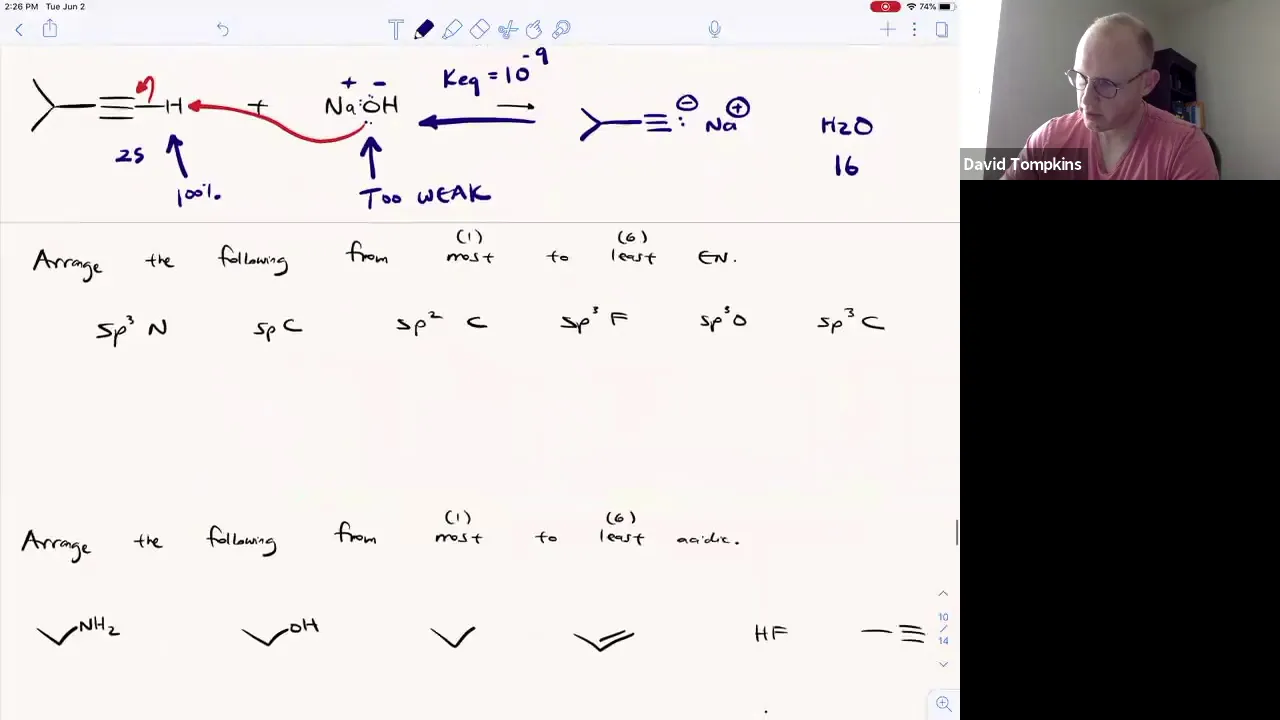 2:26 PM Tue Jun 2 74%
T
+ − Keq = 10⁻⁹
H + Na:ÖH : ⊖ Na ⊕ H2O
25 100% Too WEAK 16
David Tompkins
(1) (6)
Arrange the following from most to least EN.
sp³ N sp C sp² C sp³ F sp³ O sp³ C
(1) (6)
Arrange the following from most to least acidic.
NH2 OH HF
10
/
14